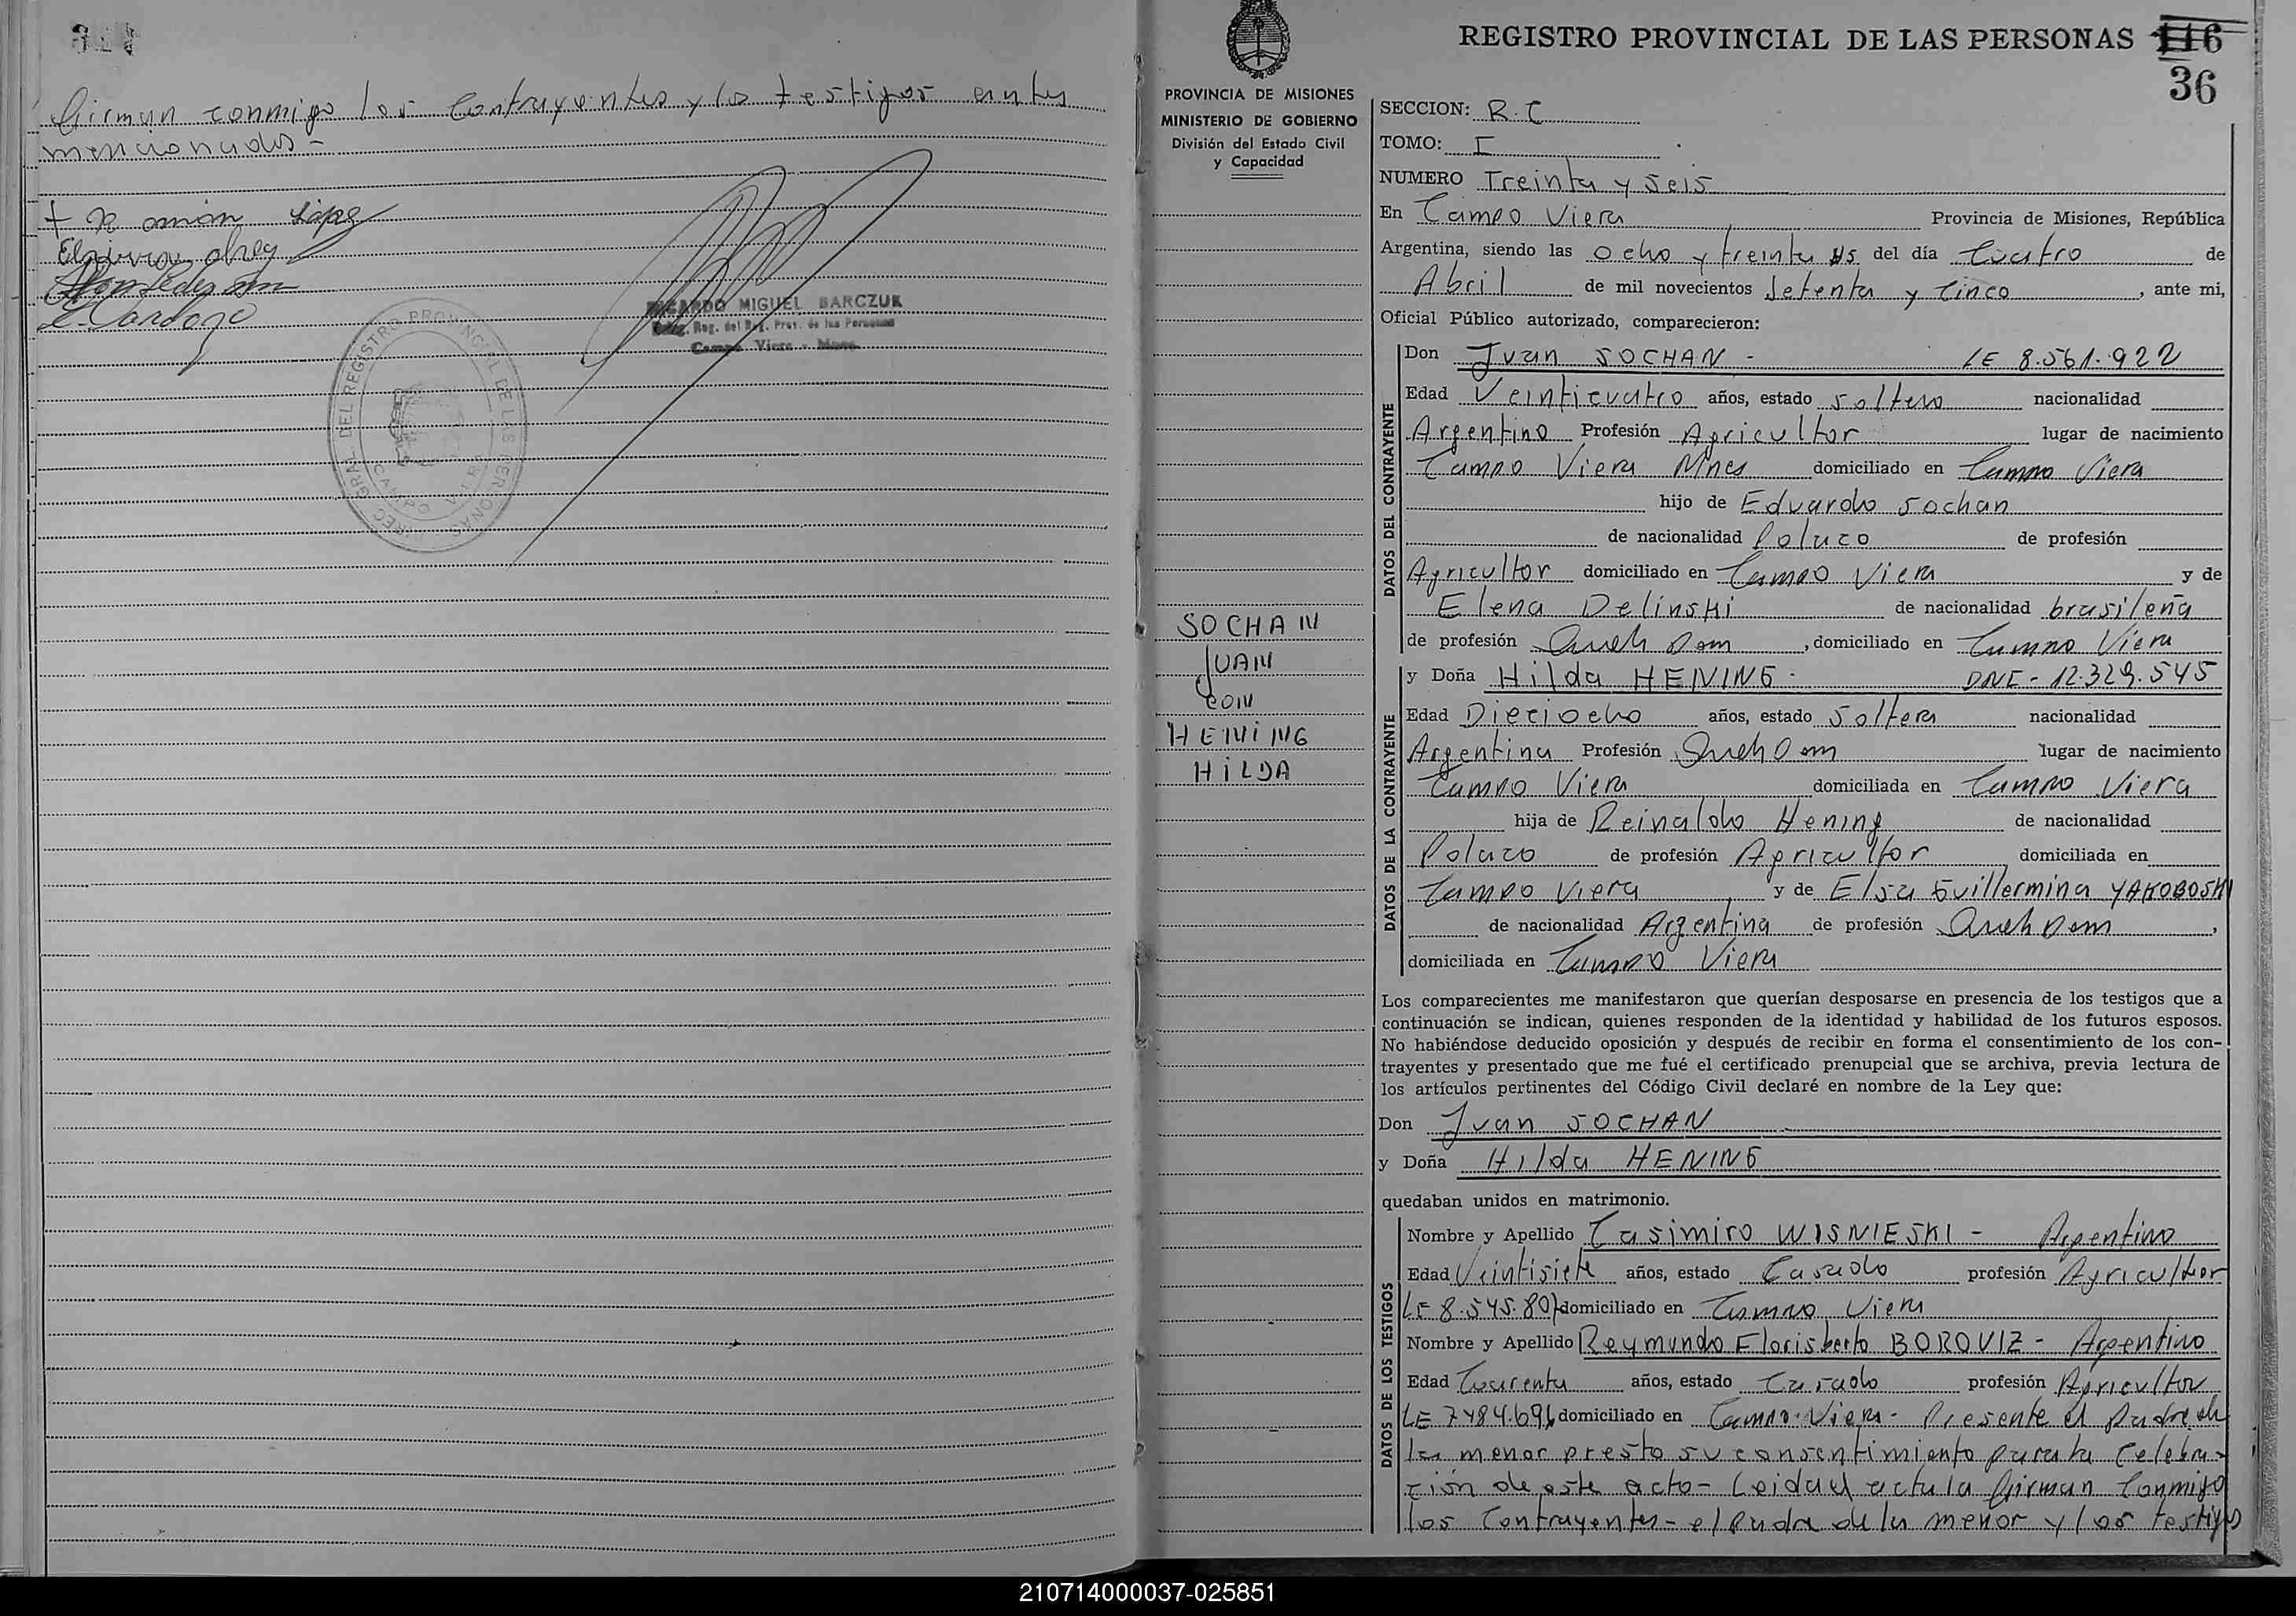 Firman conmigo los Contrayentes y los testigos antes
mencionados -
Ramón López
RICARDO MIGUEL BARCZUK
Deleg. Reg. del Reg. Prov. de las Personas
Campo Viera - Mnes.
DIREC. GRAL. DEL REGISTRO PROVINCIAL DE LAS PERSONAS
CAMPO VIERA
REGISTRO PROVINCIAL DE LAS PERSONAS 116
36
PROVINCIA DE MISIONES
MINISTERIO DE GOBIERNO
División del Estado Civil
y Capacidad
SOCHAN
JUAN
CON
HENING
HILDA
SECCION: R.C
TOMO: I
NUMERO Treinta y Seis
En Campo Viera Provincia de Misiones, República
Argentina, siendo las ocho y treinta Hs del día Cuatro de
Abril de mil novecientos Setenta y Cinco, ante mi,
Oficial Público autorizado, comparecieron:
DATOS DEL CONTRAYENTE
Don Juan SOCHAN - LE 8.561.922
Edad Veinticuatro años, estado soltero nacionalidad
Argentino Profesión Agricultor lugar de nacimiento
Campo Viera Mnes domiciliado en Campo Viera
hijo de Eduardo Sochan
de nacionalidad Polaco de profesión
Agricultor domiciliado en Campo Viera y de
Elena Delinski de nacionalidad brasileña
de profesión Queh Dom, domiciliado en Campo Viera
DATOS DE LA CONTRAYENTE
y Doña Hilda HENING - DNI - 12.329.545
Edad Dieciocho años, estado soltera nacionalidad
Argentina Profesión Queh Dom lugar de nacimiento
Campo Viera domiciliada en Campo Viera
hija de Reinaldo Hening de nacionalidad
Polaco de profesión Agricultor domiciliada en
Campo Viera y de Elsa Guillermina YAKOBOSKI
de nacionalidad Argentina de profesión Queh Dom,
domiciliada en Campo Viera
Los comparecientes me manifestaron que querían desposarse en presencia de los testigos que a
continuación se indican, quienes responden de la identidad y habilidad de los futuros esposos.
No habiéndose deducido oposición y después de recibir en forma el consentimiento de los con-
trayentes y presentado que me fué el certificado prenupcial que se archiva, previa lectura de
los artículos pertinentes del Código Civil declaré en nombre de la Ley que:
Don Juan SOCHAN
y Doña Hilda HENING
quedaban unidos en matrimonio.
DATOS DE LOS TESTIGOS
Nombre y Apellido Casimiro WISNIESKI - Argentino
Edad Veintisiete años, estado Casado profesión Agricultor
LE 8.545.807 domiciliado en Campo Viera
Nombre y Apellido Reymundo Florisberto BOROVIZ - Argentino
Edad Cuarenta años, estado Casado profesión Agricultor
LE 7484.696 domiciliado en Campo Viera - Presente el padre de
la menor presto su consentimiento para la Celebra-
ción de este acto - Leida el acta la firman Conmigo
los Contrayentes - el padre de la menor y los testigos
210714000037-025851